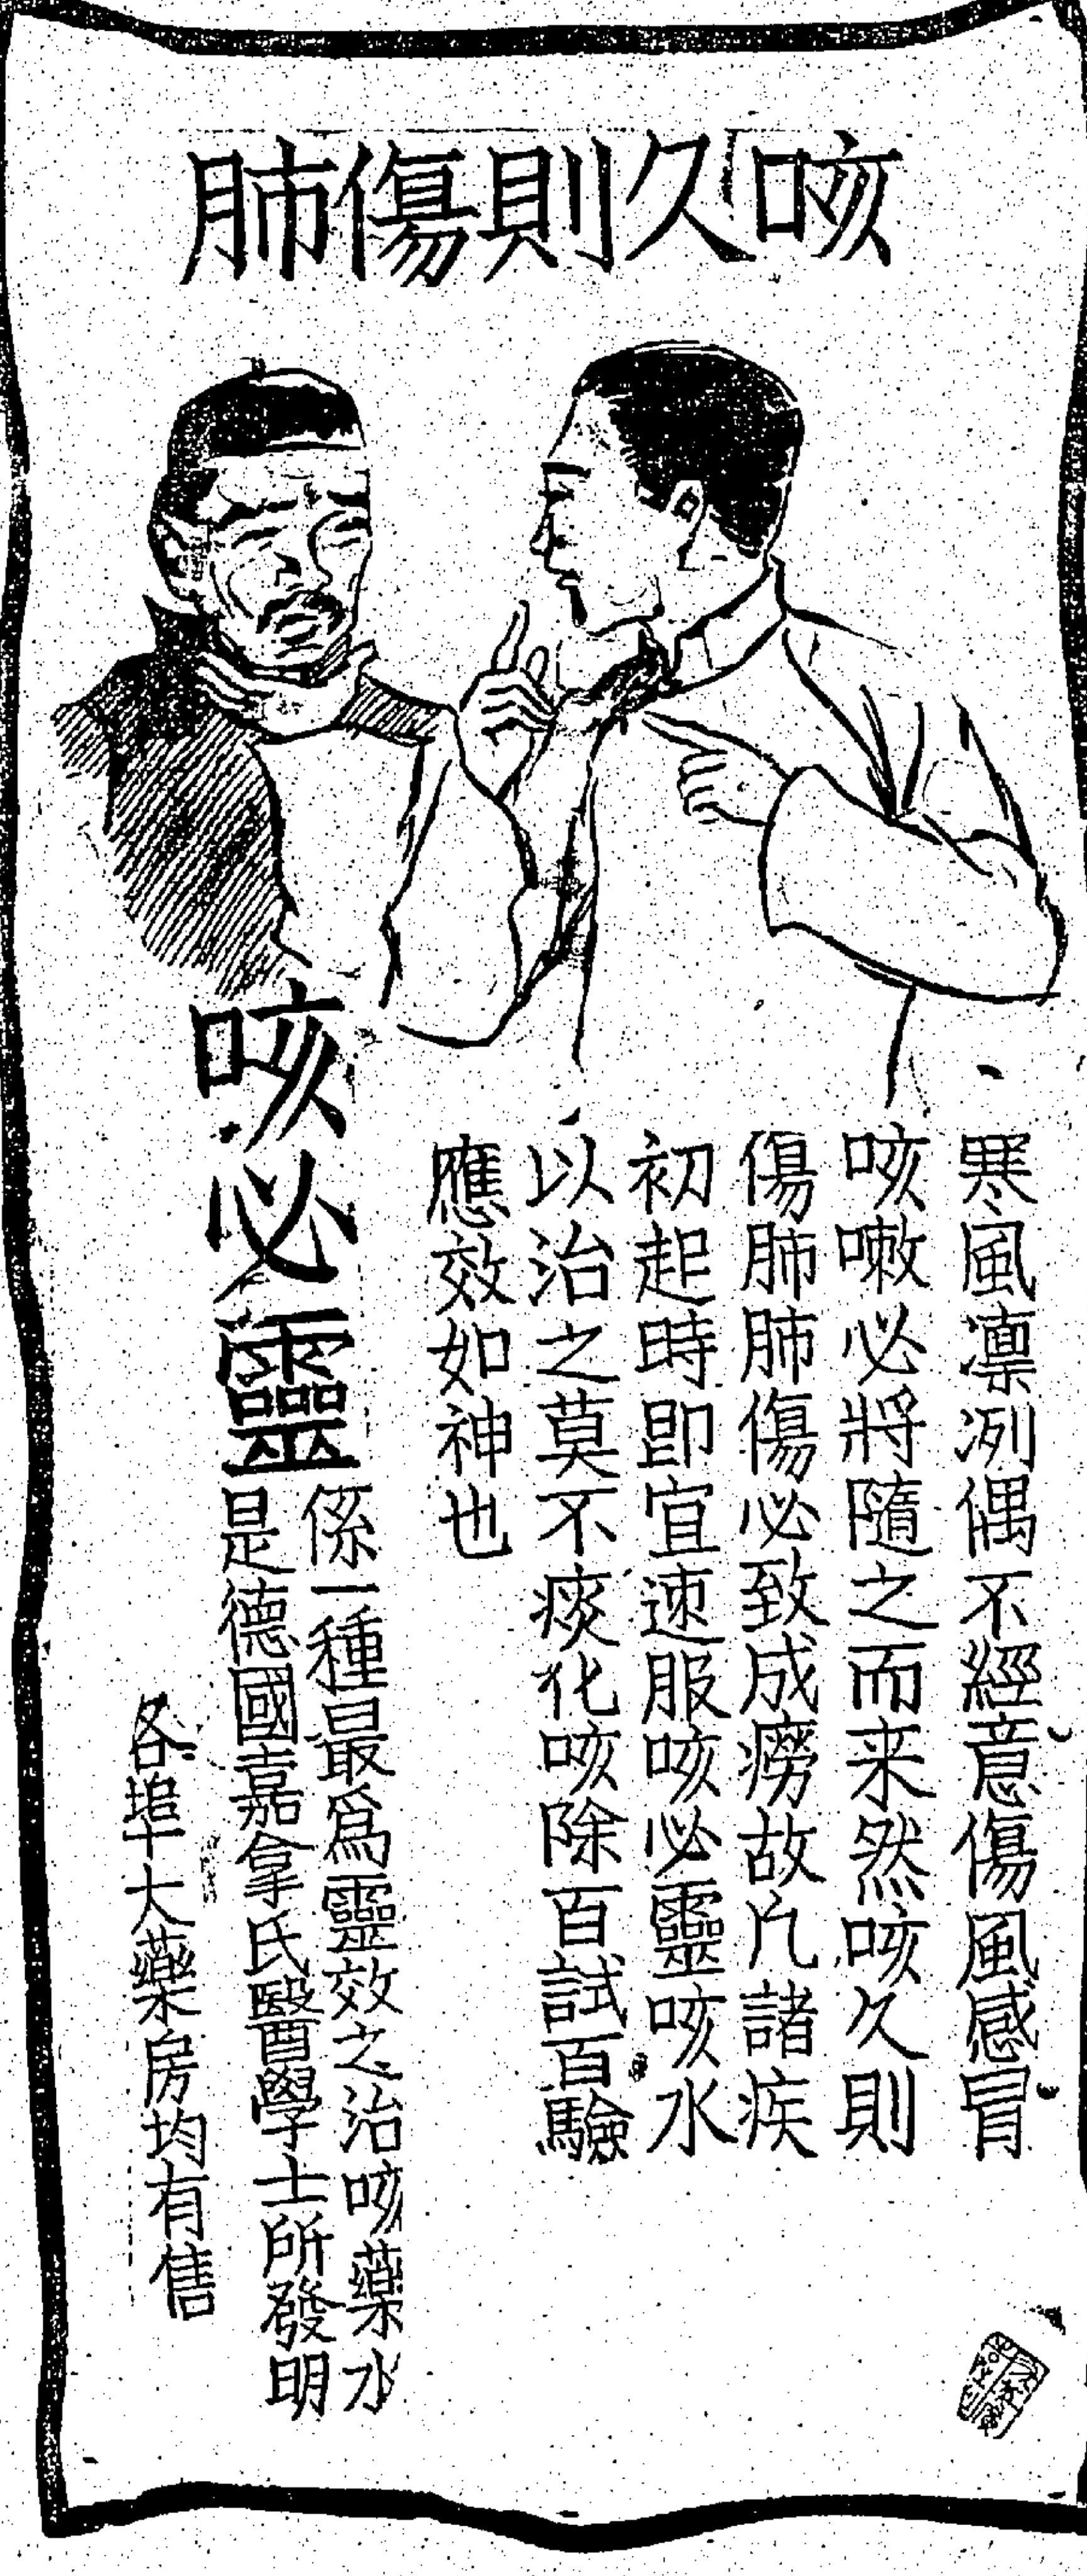 咳久則傷肺
寒風凛冽偶不經意傷風感冒
咳嗽必將隨之而来然咳久則
傷肺肺傷必致成癆故凡諸疾
初起時即宜速服咳必靈咳水
以治之莫不痰化咳除百試百驗
應效如神也
咳必靈
係一種最爲靈效之治咳藥水
是德國嘉拿氏醫學士所發明
各埠大藥房均有售